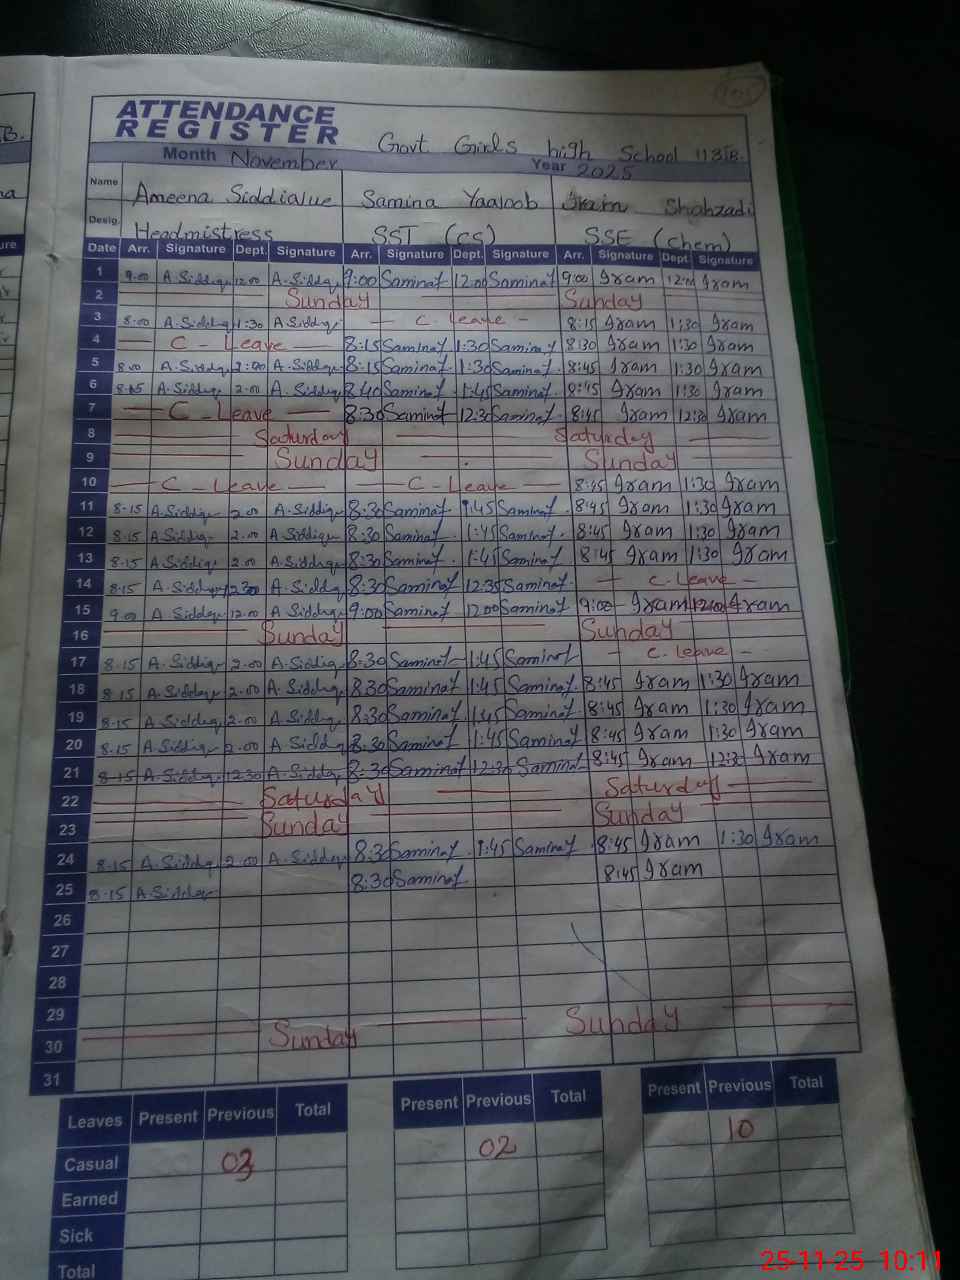 ATTENDANCE
REGISTER Govt Girls high School 113TB.
Month November Year 2025
Name Ameena Siddialue Samina Yaaloob Iram Shahzadi
Desig. Headmistress SST (CS) SSE (Chem)
Date Arr. Signature Dept. Signature Arr. Signature Dept. Signature Arr. Signature Dept. Signature
1 9.00 A.Siddiqu 12.00 A.Siddiqu 9:00 Saminat 12:00 Saminat 9:00 Iram 12:00 Iram
2 Sunday Sunday
3 8:00 A.Siddiqu 1:30 A Siddiqu C. Leave 8:15 Iram 1:30 Iram
4 C - Leave 8:15 Saminat 1:30 Saminat 8:30 Iram 1:30 Iram
5 8.00 A.Siddiqu 2:00 A.Siddiqu 8:15 Saminat 1:30 Saminat. 8:45 Iram 1:30 Iram
6 8.15 A Siddiqu 2.00 A.Siddiqu 8:40 Saminat 1:45 Saminat. 8:45 Iram 1:30 Iram
7 C - Leave 8:30 Saminat 12:30 Saminat 8:45 Iram 12:30 Iram
8 Saturday Saturday
9 Sunday Sunday
10 C - Leave C - Leave 8:45 Iram 1:30 Iram
11 8-15 A.Siddiqu 2.00 A.Siddiqu 8:30 Saminat 1:45 Saminat. 8:45 Iram 1:30 Iram
12 8.15 A.Siddiqu 2.00 A.Siddiqu 8:30 Saminat 1:45 Saminat 8:45 Iram 1:30 Iram
13 8.15 A.Siddiqu 2.00 A.Siddiqu 8:30 Saminat 1:45 Saminat 8:45 Iram 1:30 Iram
14 8.15 A.Siddiqu 12.30 A.Siddiqu 8:30 Saminat 12:35 Saminat C. Leave
15 9.00 A Siddiqu 12.00 A Siddiqu 9:00 Saminat 12.00 Saminat 9:00 Iram 12:00 Iram
16 Sunday Sunday
17 8.15 A.Siddiqu 2.00 A.Siddiqu 8:30 Saminat 1:45 Saminat C. Leave
18 8.15 A.Siddiqu 2.00 A.Siddiqu 8:30 Saminat 1:45 Saminat. 8:45 Iram 1:30 Iram
19 8.15 A.Siddiqu 2.00 A.Siddiqu 8:30 Saminat 1:45 Saminat. 8:45 Iram 1:30 Iram
20 8-15 A Siddiqu 2.00 A Siddiqu 8:30 Saminat 1:45 Saminat 8:45 Iram 1:30 Iram
21 8-15 A.Siddiqu 12.30 A.Siddiqu 8:30 Saminat 12:30 Saminat 8:45 Iram 12:30 Iram
22 Saturday Saturday
23 Sunday Sunday
24 8.15 A.Siddiqu 2.00 A.Siddiqu 8:30 Saminat 1:45 Saminat 8:45 Iram 1:30 Iram
25 8.15 A.Siddiqu 8:30 Saminat 8:45 Iram
26
27
28
29
30 Sunday Sunday
31
Leaves Present Previous Total Present Previous Total Present Previous Total
Casual 03 02 10
Earned
Sick
Total
25-11-25 10:11